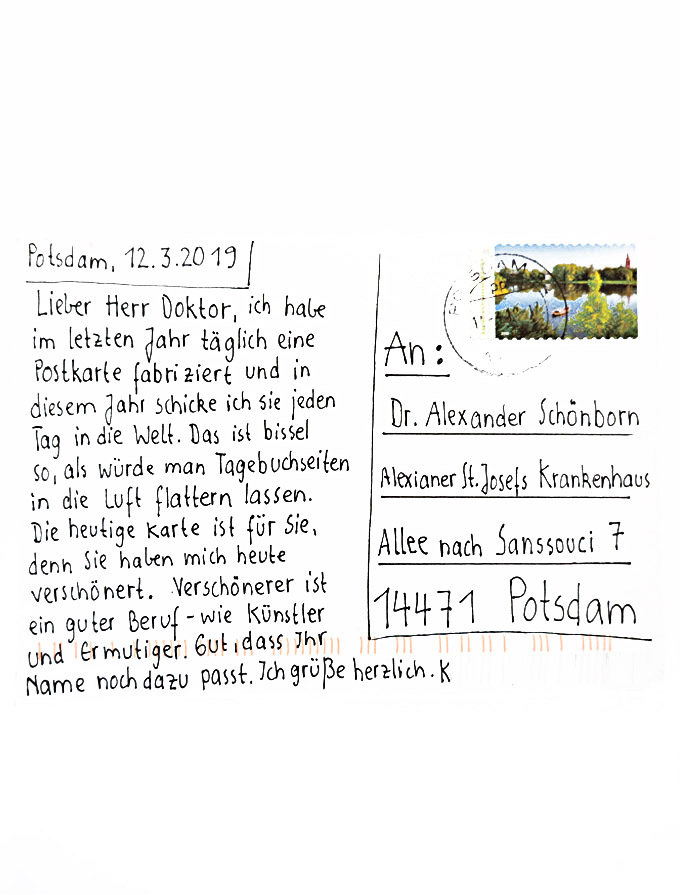 Potsdam, 12.3.2019
Lieber Herr Doktor, ich habe
im letzten Jahr täglich eine
Postkarte fabriziert und in
diesem Jahr schicke ich sie jeden
Tag in die Welt. Das ist bissel
so, als würde man Tagebuchseiten
in die Luft flattern lassen.
Die heutige Karte ist für Sie,
denn Sie haben mich heute
verschönert. Verschönerer ist
ein guter Beruf - wie Künstler
und Ermutiger. Gut, dass Ihr
Name noch dazu passt. Ich grüße herzlich. K
An:
Dr. Alexander Schönborn
Alexianer St. Josefs Krankenhaus
Allee nach Sanssouci 7
14471 Potsdam